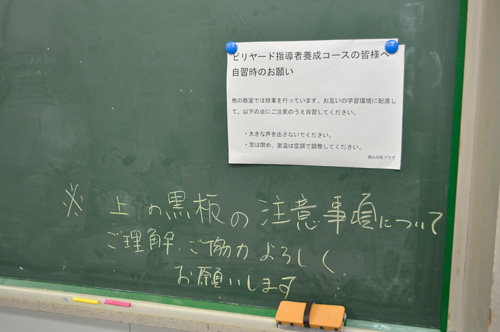 ビリヤード指導者養成コースの皆様へ
自習時のお願い
他の教室では授業を行っています。お互いの学習環境に配慮し
て、以下の点にご注意のうえ自習してください。
・大きな声を出さないでください。
・窓は閉め、室温は空調で調整してください。
※ 上の黒板の注意事項について
ご理解、ご協力よろしく
お願いします